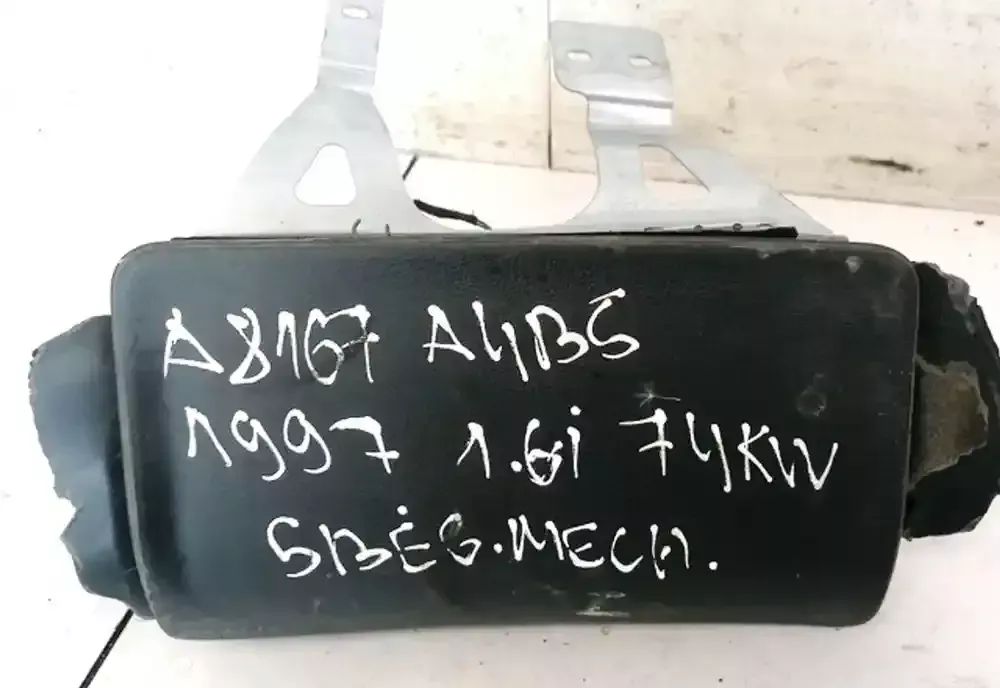 A8167 A4B5
1997 1.6i 74KW
5BĖG.MECH.